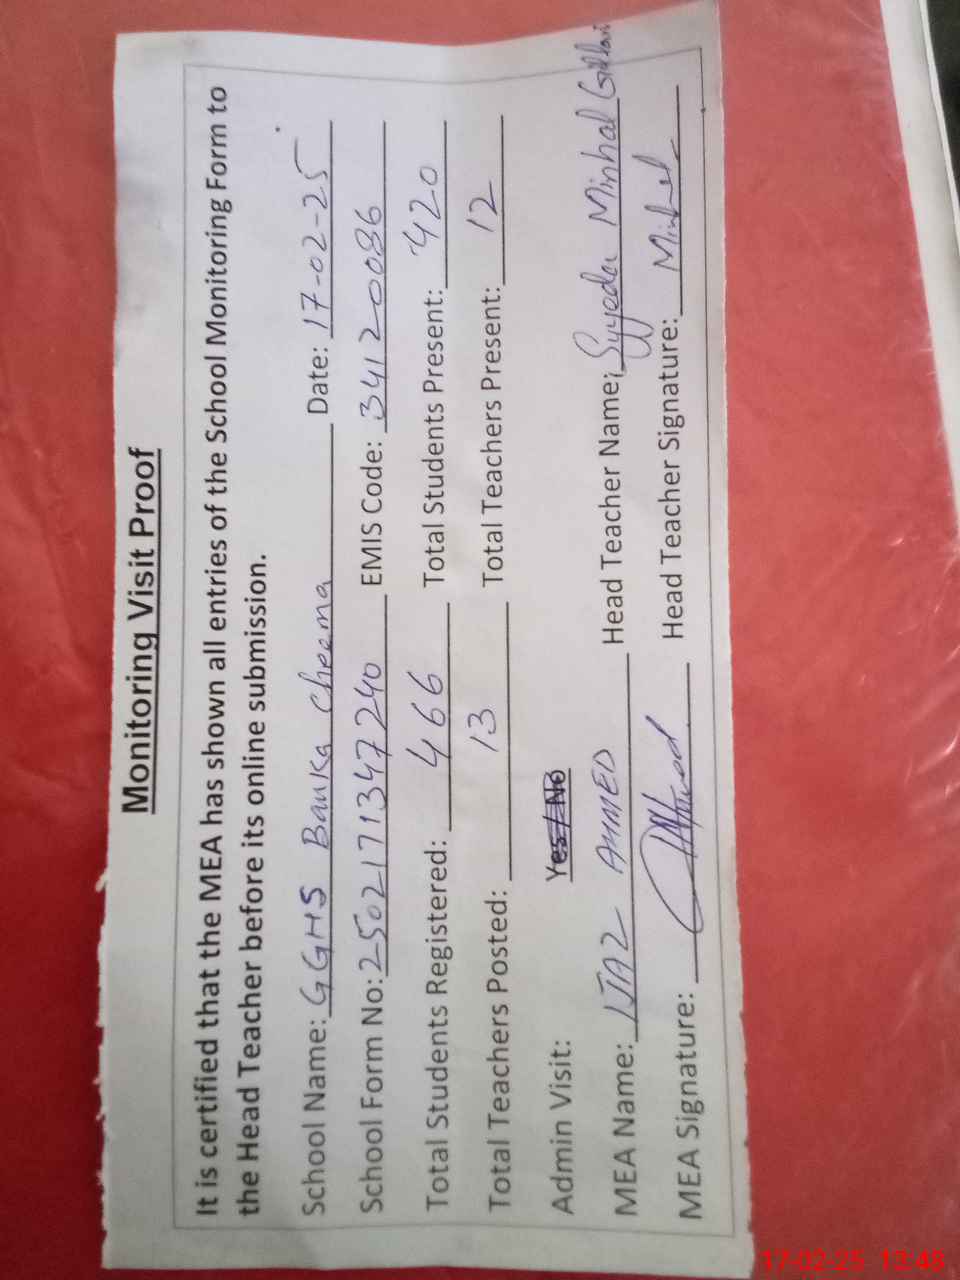 Monitoring Visit Proof
It is certified that the MEA has shown all entries of the School Monitoring Form to
the Head Teacher before its online submission.
School Name: GGHS Banka Cheema Date: 17-02-25
School Form No: 2502171347240 EMIS Code: 34120086
Total Students Registered: 466 Total Students Present: 420
Total Teachers Posted: 13 Total Teachers Present: 12
Admin Visit: Yes/No
MEA Name: IJAZ AHMED Head Teacher Name: Syyeda Minhal
MEA Signature: Head Teacher Signature: Minhal
17-02-25 13:48